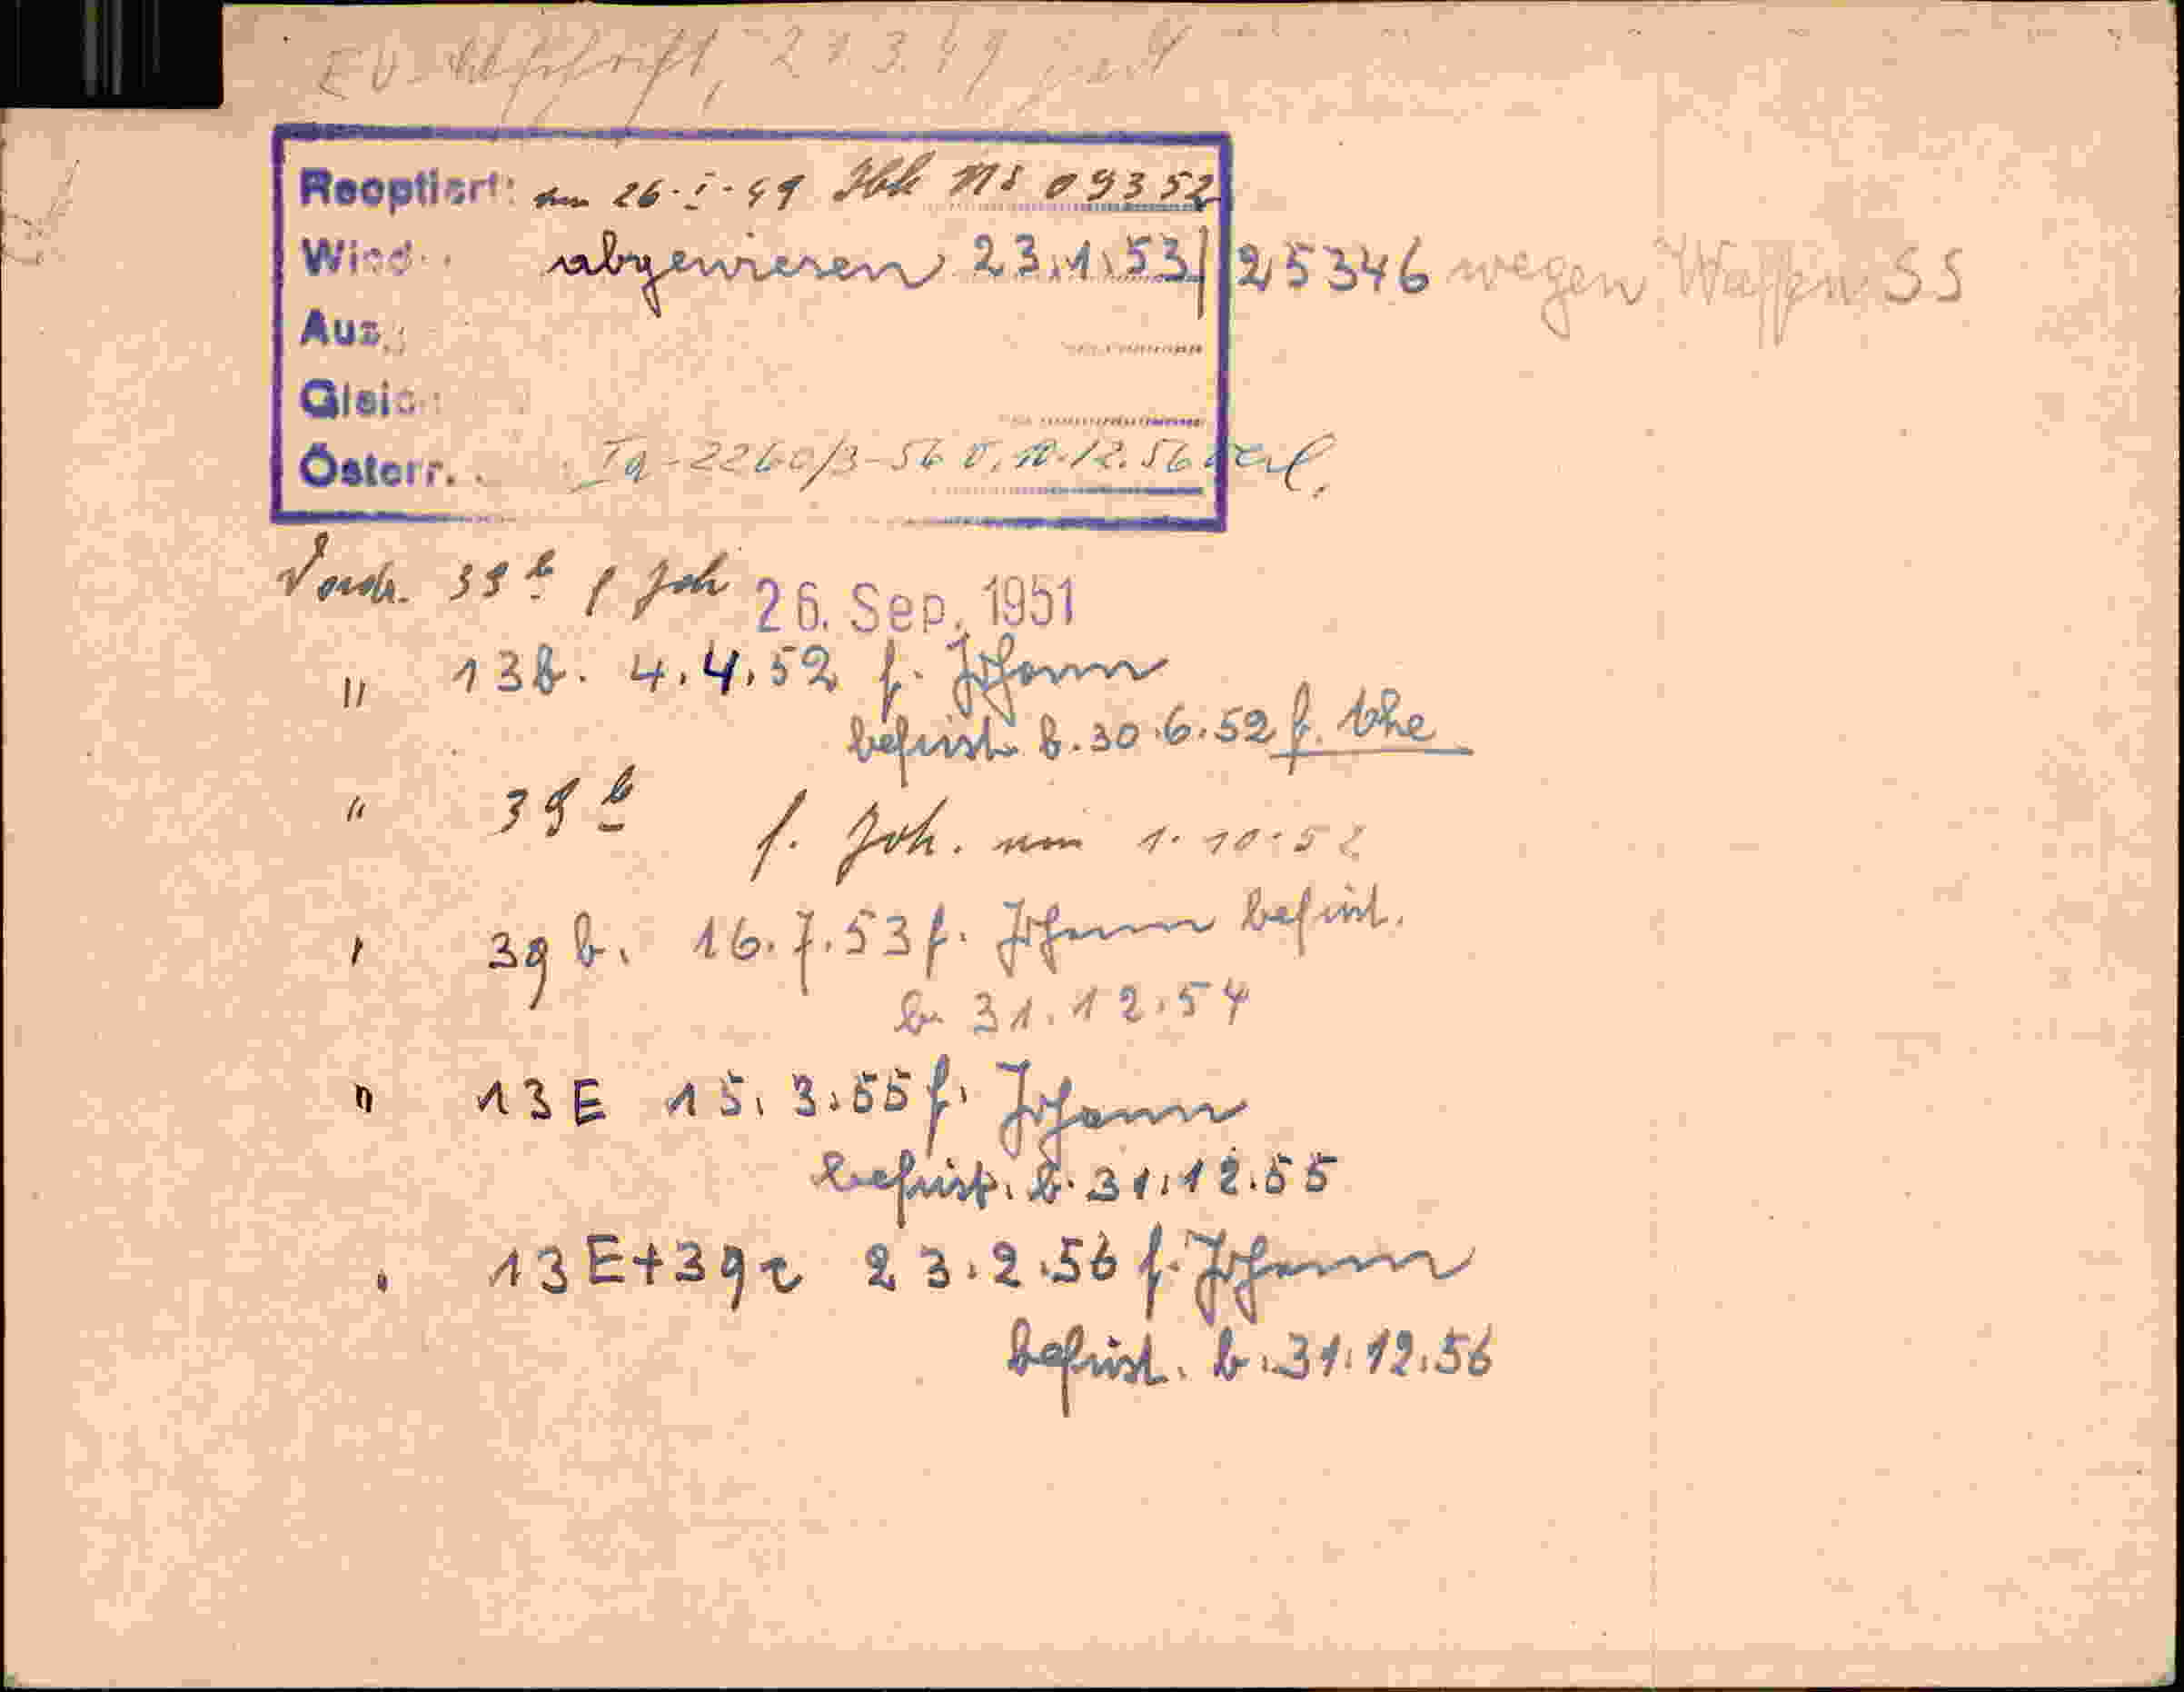 21.3.49
Reoptiert: am 26.I.49 Nr 09352
Wied abgewiesen 23.1.53/25346 wegen Waffen SS
Aus.:
Gleic
Österr. Ia-2260/3-56 v. 12.56
39b f Joh 26. Sep. 1951
" 13b. 4.4.52 f. Johann
befrist. b. 30.6.52 f. Ehe
" 39b f. Joh. am 1.10.52
39 b. 16.7.53 f. Johann befrist.
b. 31.12.54
" 13E 15.3.55 f. Johann
befrist. b. 31.12.55
13E+39r 23.2.56 f. Johann
befrist. b. 31.12.56